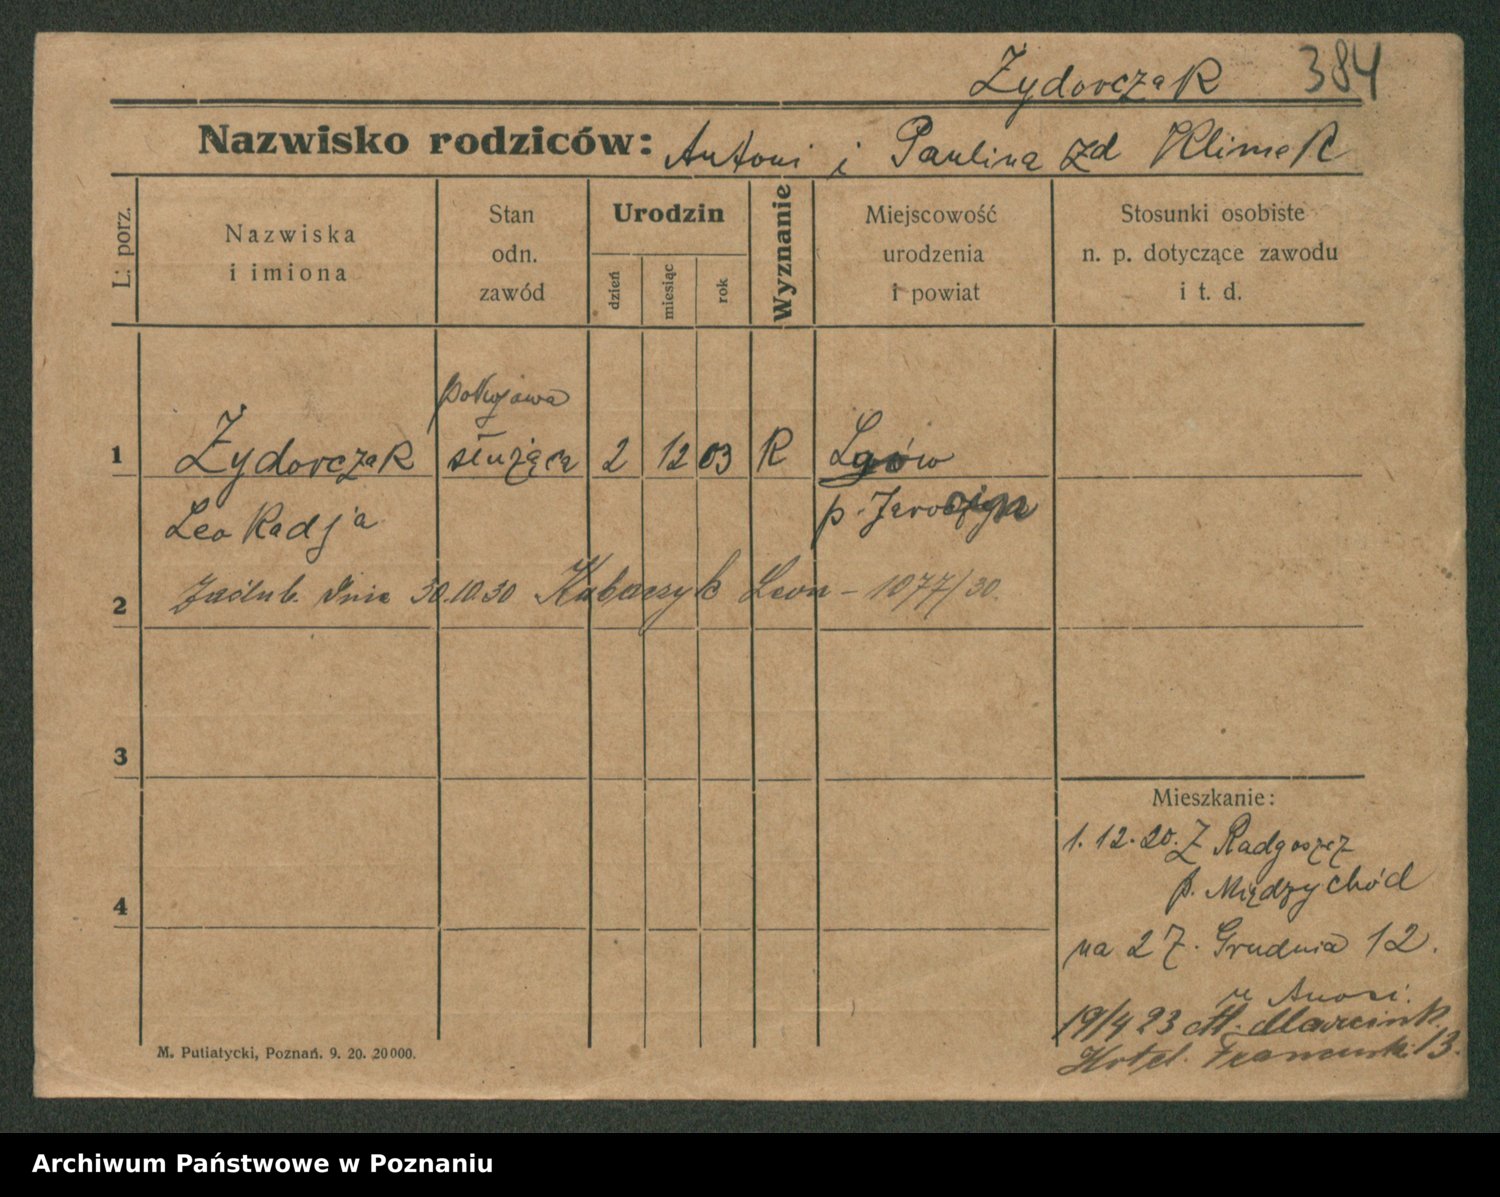 Zydorczak 384
Nazwisko rodziców: Antoni i Paulina zd Klimek
L. porz.
Nazwiska
i imiona
Stan
odn.
zawód
Urodzin
dzień
miesiąc
rok
Wyznanie
Miejscowość
urodzenia
i powiat
Stosunki osobiste
n. p. dotyczące zawodu
i t. d.
pokojowa
1 Zydorczak służąca 2 12 03 R Lgów
Leokadja p. Jarocin
2 Zaślub. dnia 30.10.30 Kubarzyk Leon – 1077/30.
3
4
Mieszkanie:
1.12.20. Z Radgoszcz
p. Międzychód
na 27. Grudnia 12.
19/4 23 Al. Marcink.
Hotel Francuski 13.
M. Putiatycki, Poznań. 9. 20. 20000.
Archiwum Państwowe w Poznaniu